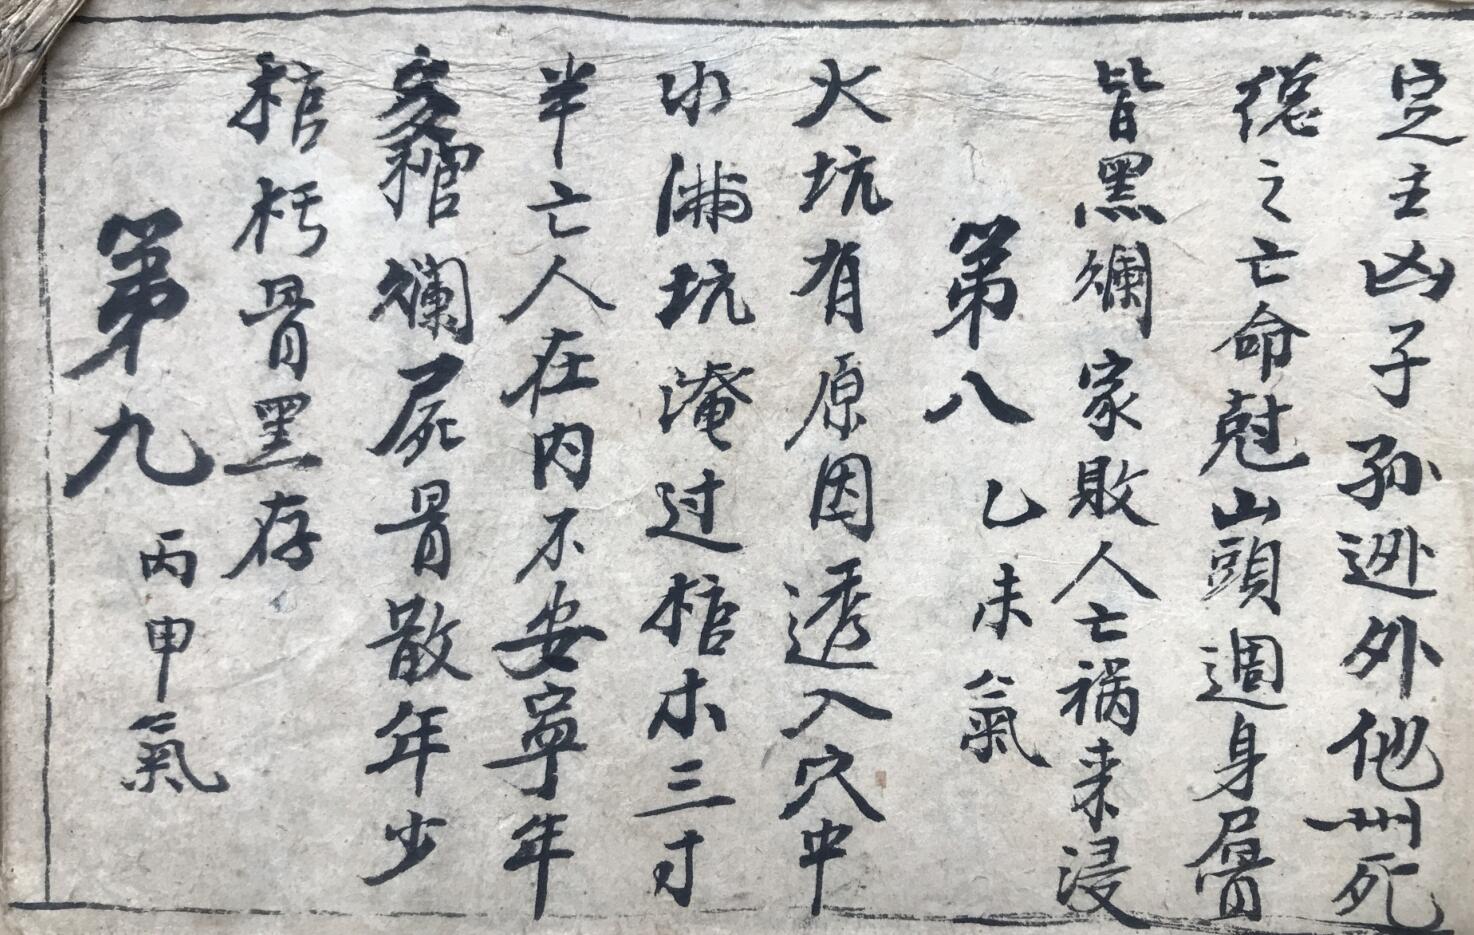 定主凶子孙逃外他州死
穏之亡命尅山頭週身屑
皆黑爛家敗人亡祸来浸
第八 乙未氣
火坑有原因透入穴中
水满坑淹过棺木三寸
半亡人在内不安寧年
棺爛屍骨散年少
棺朽骨黑存
第九 丙申氣